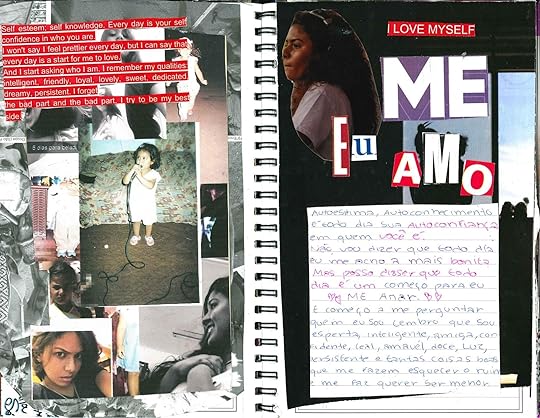 Self esteem; self knowledge. Every day is your self
confidence in who you are.
I won't say I feel prettier every day, but I can say that
every day is a start for me to love.
And I start asking who I am. I remember my qualities:
intelligent, friendly, loyal, lovely, sweet, dedicated,
dreamy, persistent. I forget
the bad part and the bad part. I try to be my best
side.
I LOVE MYSELF
ME
Eu
AMO
AUTOESTIMA, AUTOCONHECIMENTO
É todo dia sua AUTOCONFIANÇA
em quem você é
Não vou dizer que todo dia
eu me acho a mais bonita
Mas posso dizer que todo
dia é um começo para eu
ME AMAR.
E começo a me perguntar
quem eu sou, lembro que sou
esperta, inteligente, amiga, con-
fidente, leal, amável, doce, Luz,
persistente e tantas coisas boas
que me fazem esquecer o ruim
e me faz querer ser